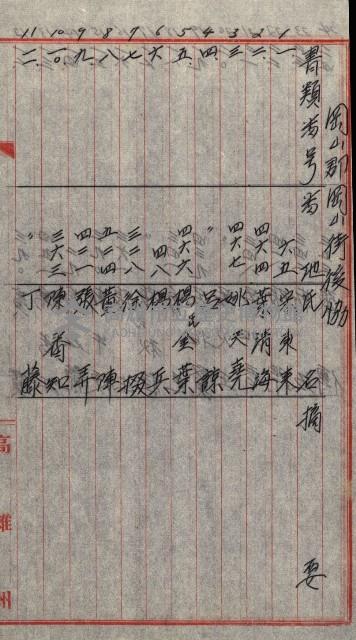 岡山郡岡山街後協
書類番号 番地 氏名 摘要
1 一 六五 宋東来
2 二 四六四 葉清海
3 三 四六七 姚天堯
4 四 〃 呂諒
5 五 四六六 楊氏金葉
6 六 四八 楊兵
7 七 三三八 徐掇
8 八 五三四 黄陣
9 九 四三一 張弄
10 一〇 三六三 陳香知
11 一一 〃 丁藤
高雄州